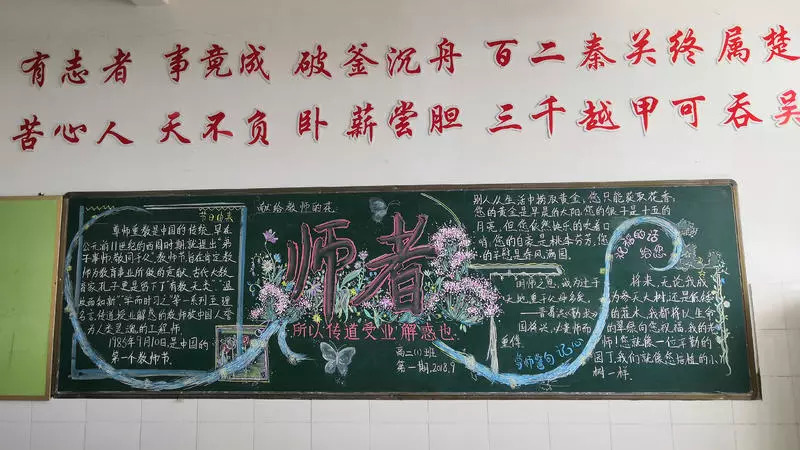 有志者 事竟成 破釜沉舟 百二秦关终属楚
苦心人 天不负 卧薪尝胆 三千越甲可吞吴
节日由来
尊师重教是中国的传统,早在
公元前11世纪的西周时期,就提出“弟
子事师,敬同于父”。教师节,旨在肯定教
师为教育事业所做的贡献。古代大教
育家孔子更是留下了“有教无类”“温
故而知新”“学而时习之”等一系列至理
名言,传道授业解惑的教师被中国人誉
为人类灵魂的工程师。
1985年9月10日,是中国的
第一个教师节。
献给教师的花:
师者
所以传道受业解惑也
高二(1)班
第一期,2018.9
别人从生活中撷取黄金,您只能获取花香;
您的黄金是早晨的太阳,您的银子是十五的
月亮,但您依然快乐的吹着口
哨,您的白发是桃李芬芳,您
春风满园。
祝福的话
给您
重得。
名师警句 记心
将来,无论我成
为参天大树,还是低矮
的灌木,我都将以生命
的翠绿向您祝福,我的老
师!您就像一位辛勤的
园丁,我们就像您培植的小
树一样。